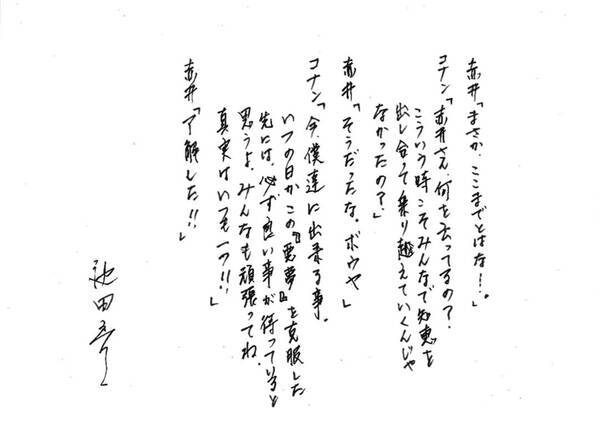 赤井「まさか、ここまでとはな…。」
コナン「赤井さん、何を云ってるの?
こういう時こそみんなで知恵を
出し合って乗り越えていくんじゃ
なかったの?」
赤井「そうだったな、ボウヤ」
コナン「今、僕達に出来る事。
いつの日かこの『悪夢』を克服した
先には、必ず良い事が待っていると
思うよ。みんなも頑張ってね。
真実はいつも一つ!!」
赤井「了解した!!」
池田秀一